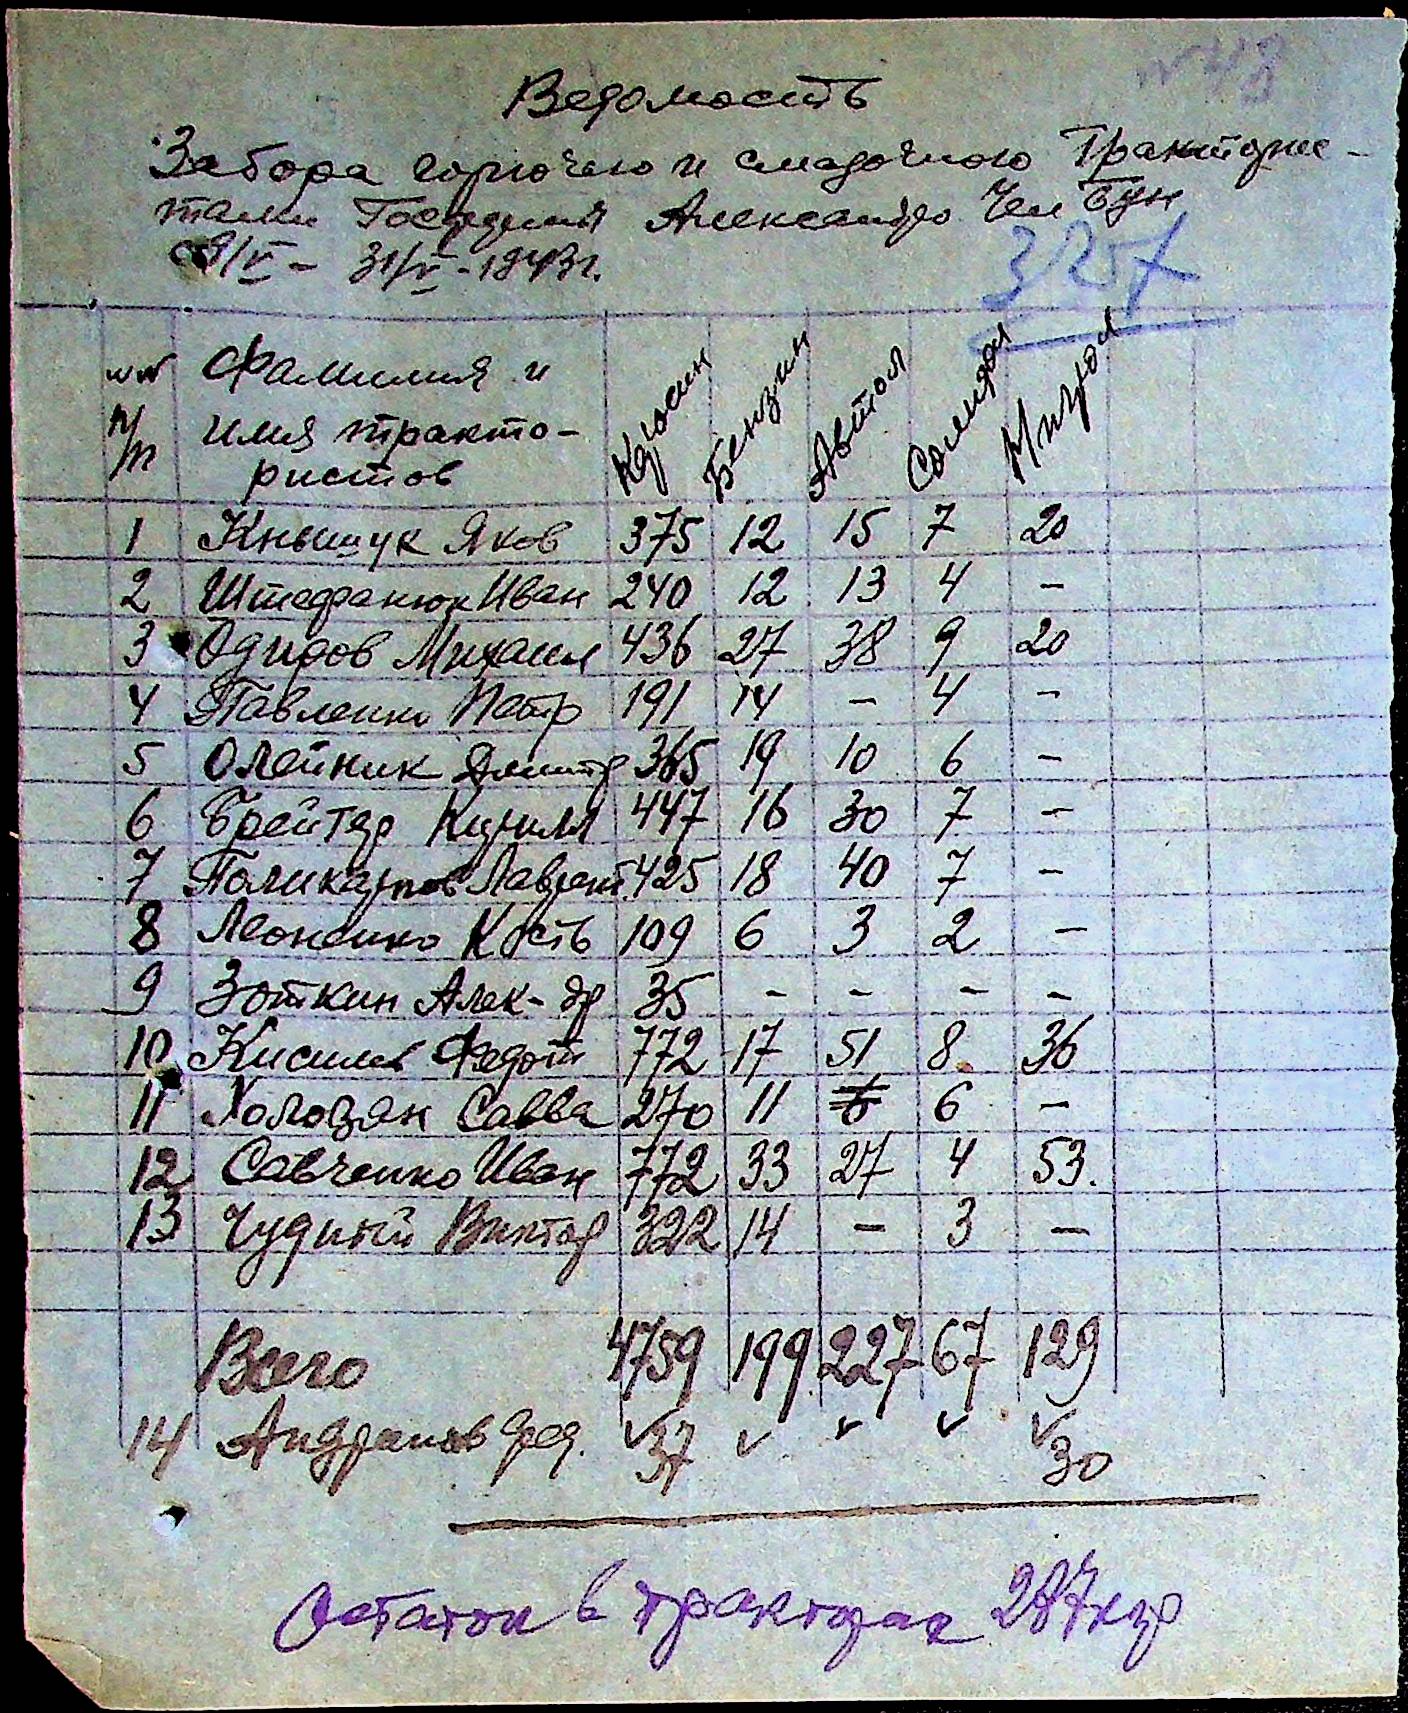 № 48
Ведомость
Забора горючего и смазочного Трактори-
тами Александро Чел Бун
9/V - 31/V - 1943 г.
3257
№№ Фамилия и Керосин Бензин Автол Солидол Нигрол
п/п имя тракто-
ристов
1 Кнышук Яков 375 12 15 7 20
2 Штефанюк Иван 240 12 13 4 -
3 Одидов Михаил 436 27 38 9 20
4 Павленко Петр 191 14 - 4 -
5 Олейник Дмитр 365 19 10 6 -
6 Брейтер Кирилл 447 16 30 7 -
7 Поликарпов Лаврент. 425 18 40 7 -
8 Леоненко К-сть 109 6 3 2 -
9 Зоткин Алек-др 35 - - - -
10 Кисилев Федот 772 17 51 8 36
11 Холодян Савва 270 11 6 6 -
12 Савченко Иван 772 33 27 4 53.
13 Чудный Виктор 322 14 - 3 -
Всего 4759 199 227 67 129
14 Андрианов Фед. 37 30
Остаток в тракторах 287 кгр